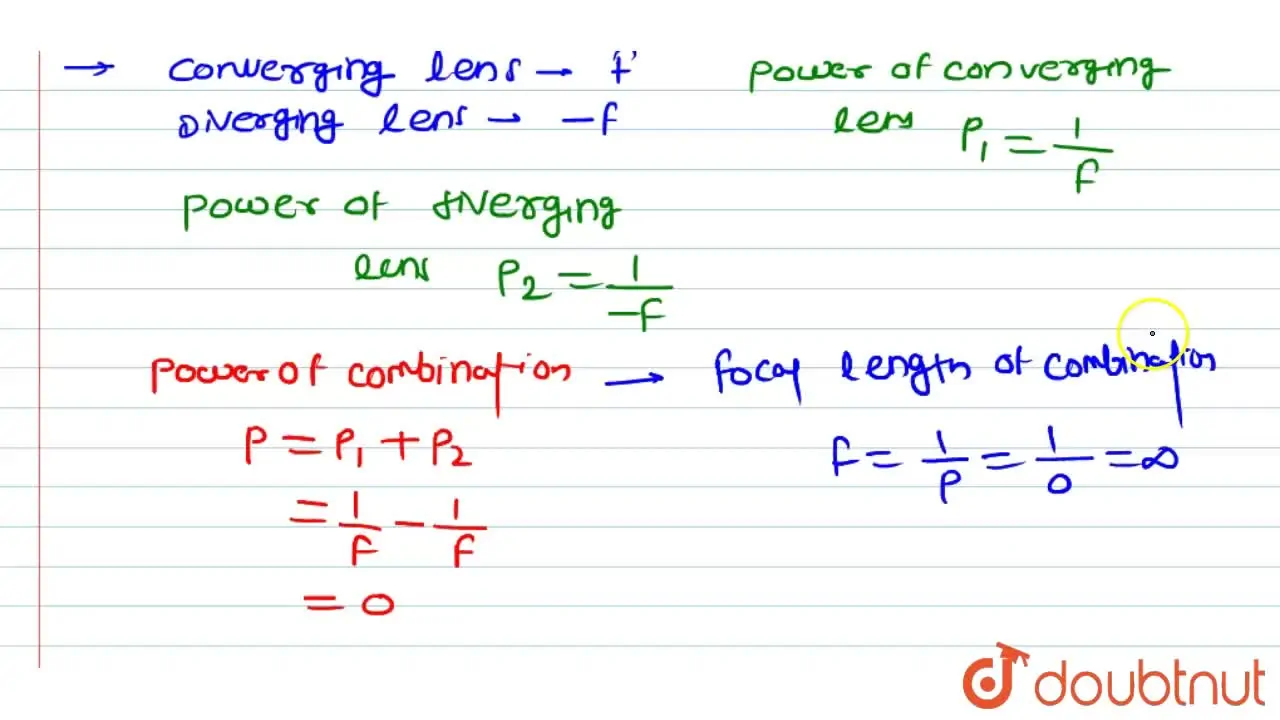 → converging lens → f
Diverging lens → -f
power of converging
lens P₁ = 1/f
power of diverging
lens P₂ = 1/-f
power of combination → focal length of combination
P = P₁ + P₂
= 1/f - 1/f
= 0
f = 1/P = 1/0 = ∞
doubtnut